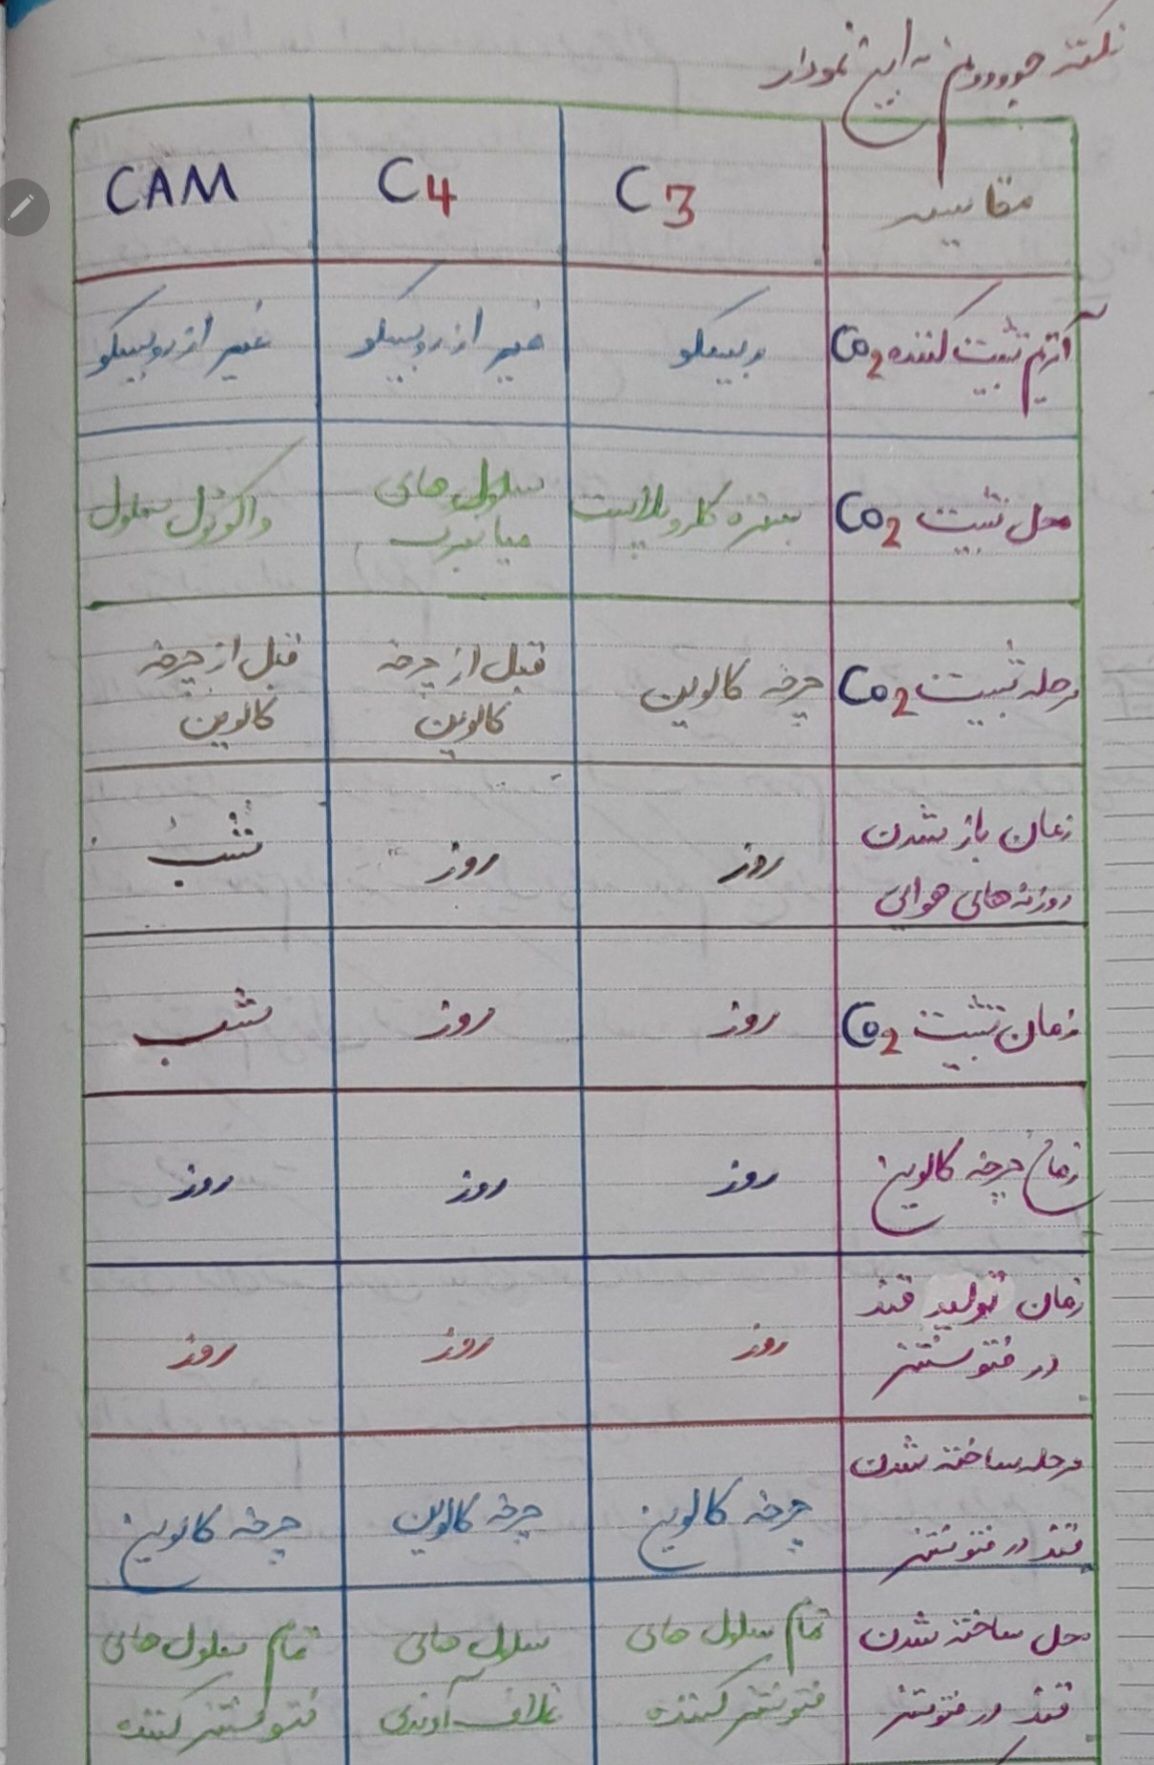 نکته جوووون به این نمودار
مقایسه C3 C4 CAM
آنزیم تثبیت کننده CO2 ربیسکو غیر از روبیسکو غیر از روبیسکو
محل تثبیت CO2 بستره کلروپلاست سلول های میانبرگ واکوئول سلول
مرحله تثبیت CO2 چرخه کالوین قبل از چرخه کالوین قبل از چرخه کالوین
زمان باز شدن روزنه های هوایی روز روز شب
زمان تثبیت CO2 روز روز شب
زمان چرخه کالوین روز روز روز
زمان تولید قند در فتوسنتز روز روز روز
مرحله ساخته شدن قند در فتوسنتز چرخه کالوین چرخه کالوین چرخه کالوین
محل ساخته شدن قند در فتوسنتز تمام سلول های فتوسنتز کننده سلول های غلاف آوندی تمام سلول های فتوسنتز کننده